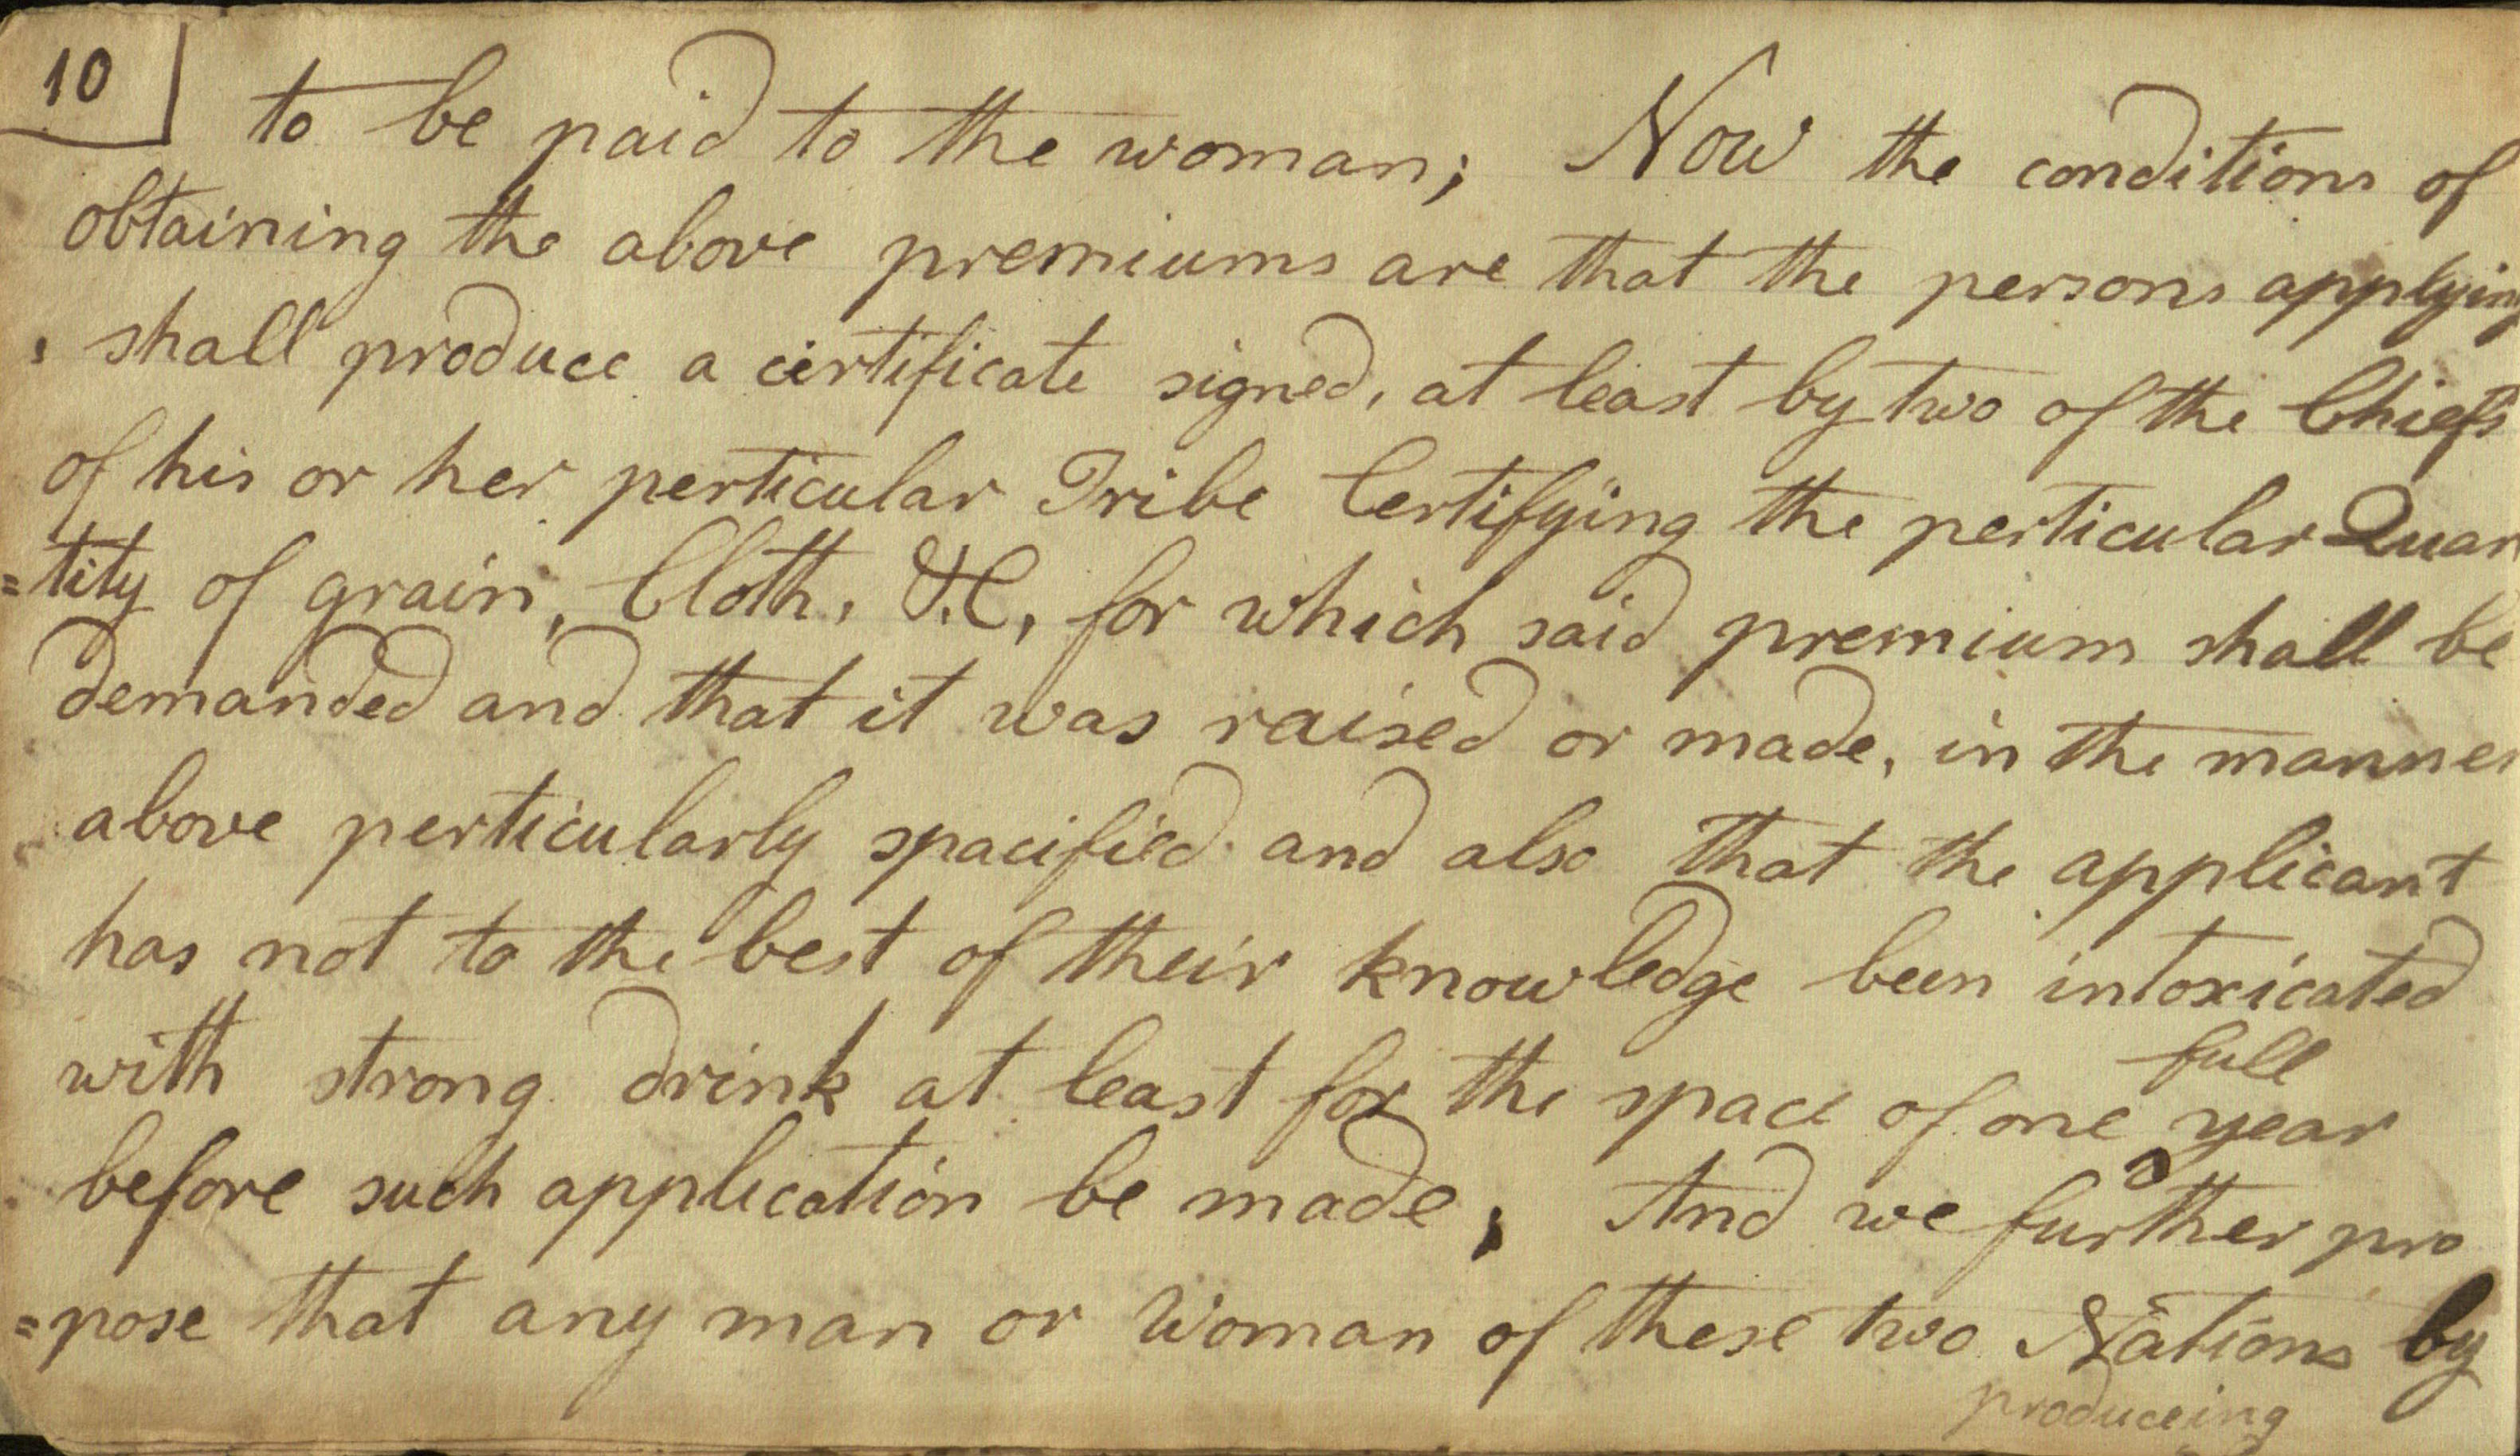 10
to be paid to the woman; Now the conditions of
obtaining the above premiums are that the persons applying
shall produce a certificate signed, at least by two of the Chiefs
of his or her perticular Tribe Certifying the perticular Quan
=tity of grain, Cloth, &.C, for which said premium shall be
demanded and that it was raised or made, in the manner
above perticularly spacified and also that the applicant
has not to the best of their knowledge been intoxicated
with strong drink at least for the space of one full year
before such application be made; And we further pro
=pose that any man or Woman of these two Nations by
produceing